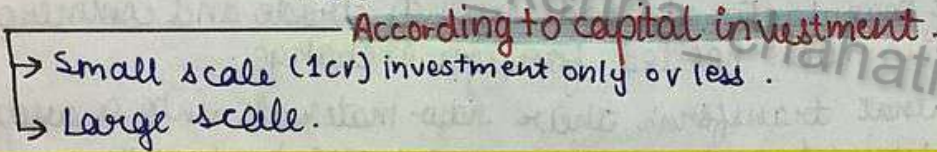 According to capital investment.
→ Small scale (1cr) investment only or less.
→ Large scale.